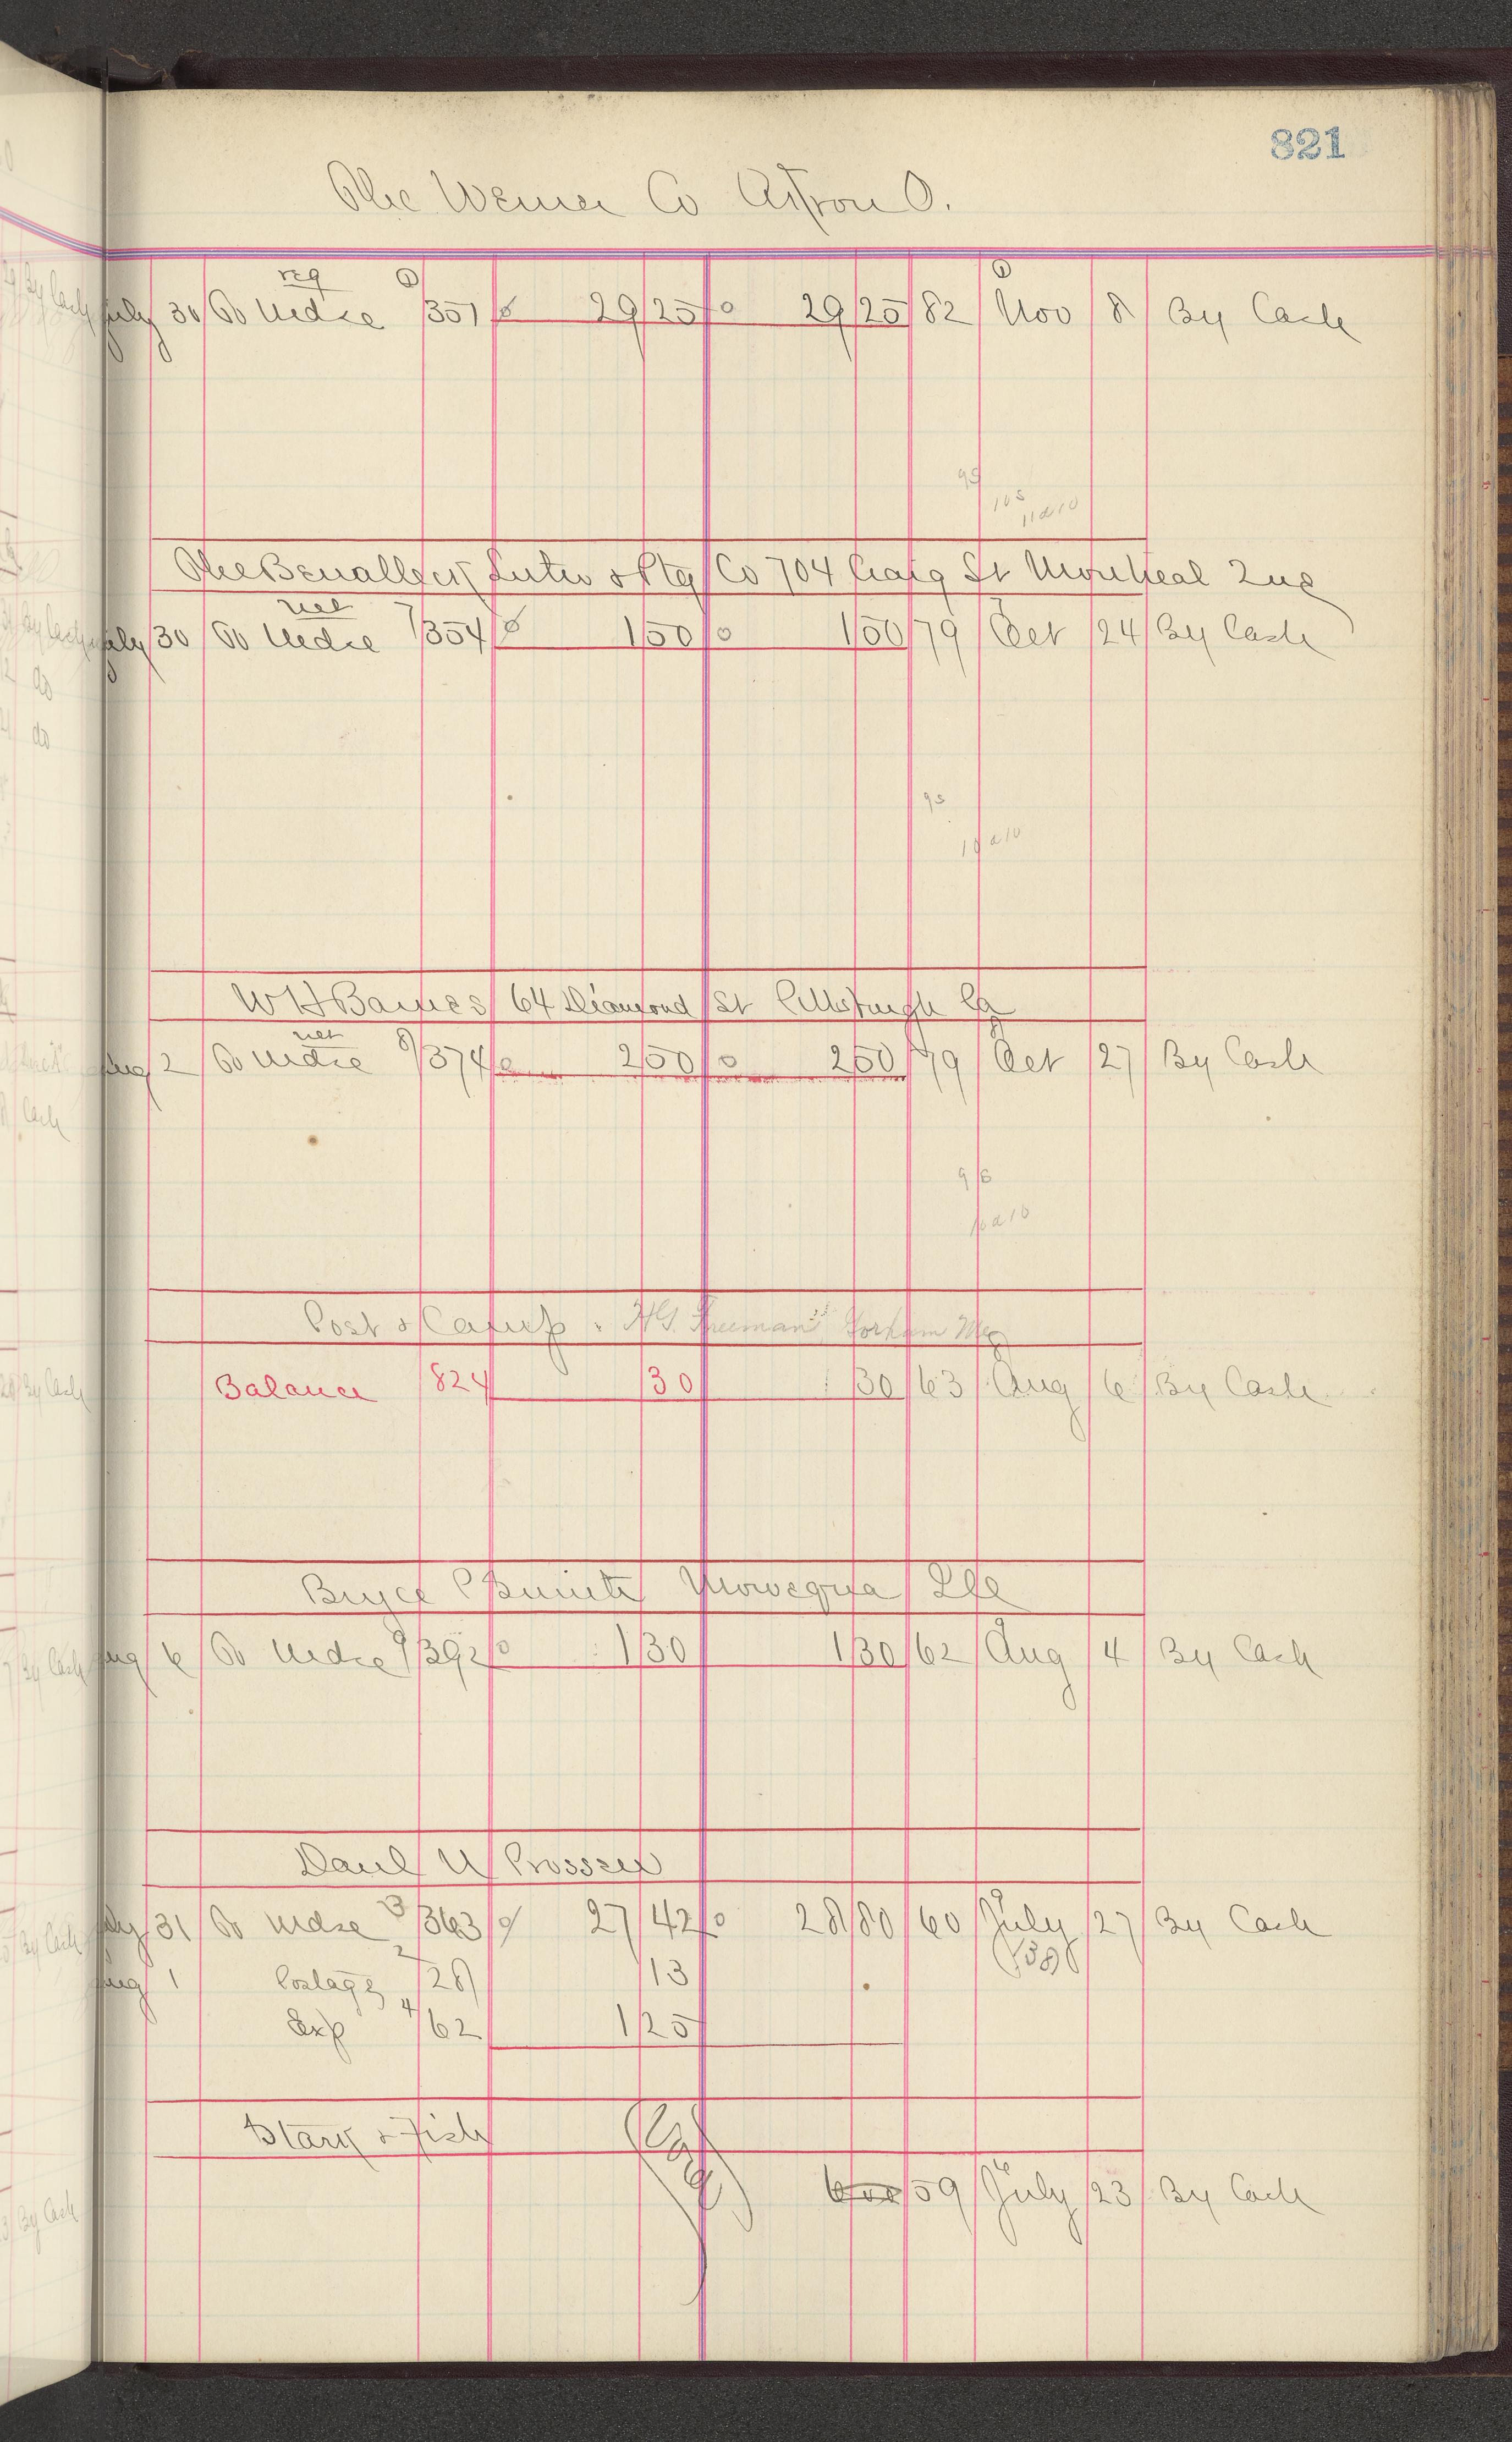 821
The Werner Co Akron O.
reg 1 1
July 30 To Mdse 351 29 25 29 25 82 Nov 8 By Cash
95
105
11 a 10
The Benallack Litho & Ptg Co 704 Craig St Montreal Que
net 7
July 30 To Mdse 354 1 50 1 50 79 Oct 24 By Cash
95
10 a 10
W H Barnes 64 Diamond St Pittsburgh Pa
net 8
Aug 2 To Mdse 374 2 50 2 50 79 Oct 27 By Cash
96
10 a 10
Post & Camp. H G. Freeman Gorham Me
Balance 824 30 30 63 Aug 6 By Cash
Bryce P Smith Mowequa Ill
Aug 6 To Mdse 9 392 1 30 1 30 62 Aug 4 By Cash
Danl W Prosser
July 31 To Mdse 3 363 27 42 28 80 60 July 27 By Cash
Aug 1 Postage 2 28 13
Exp 4 62 1 25
Stark & Fish
59 July 23 By Cash